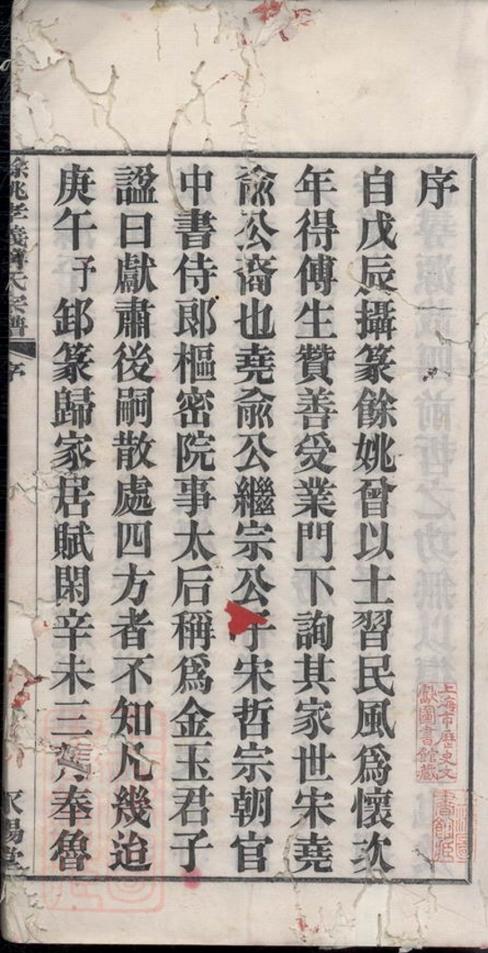 序
自戊辰攝篆餘姚曾以士習民風爲懷次
年得傅生贊善受業門下詢其家世宋堯
俞公裔也堯俞公繼宗公子宋哲宗朝官
中書侍郎樞密院事太后稱爲金玉君子
諡曰獻肅後嗣散處四方者不知凡幾迨
庚午予卸篆歸家居賦閑辛未三月奉魯
餘姚孝義傅氏宗譜 序
上海市歷史文
獻圖書館藏